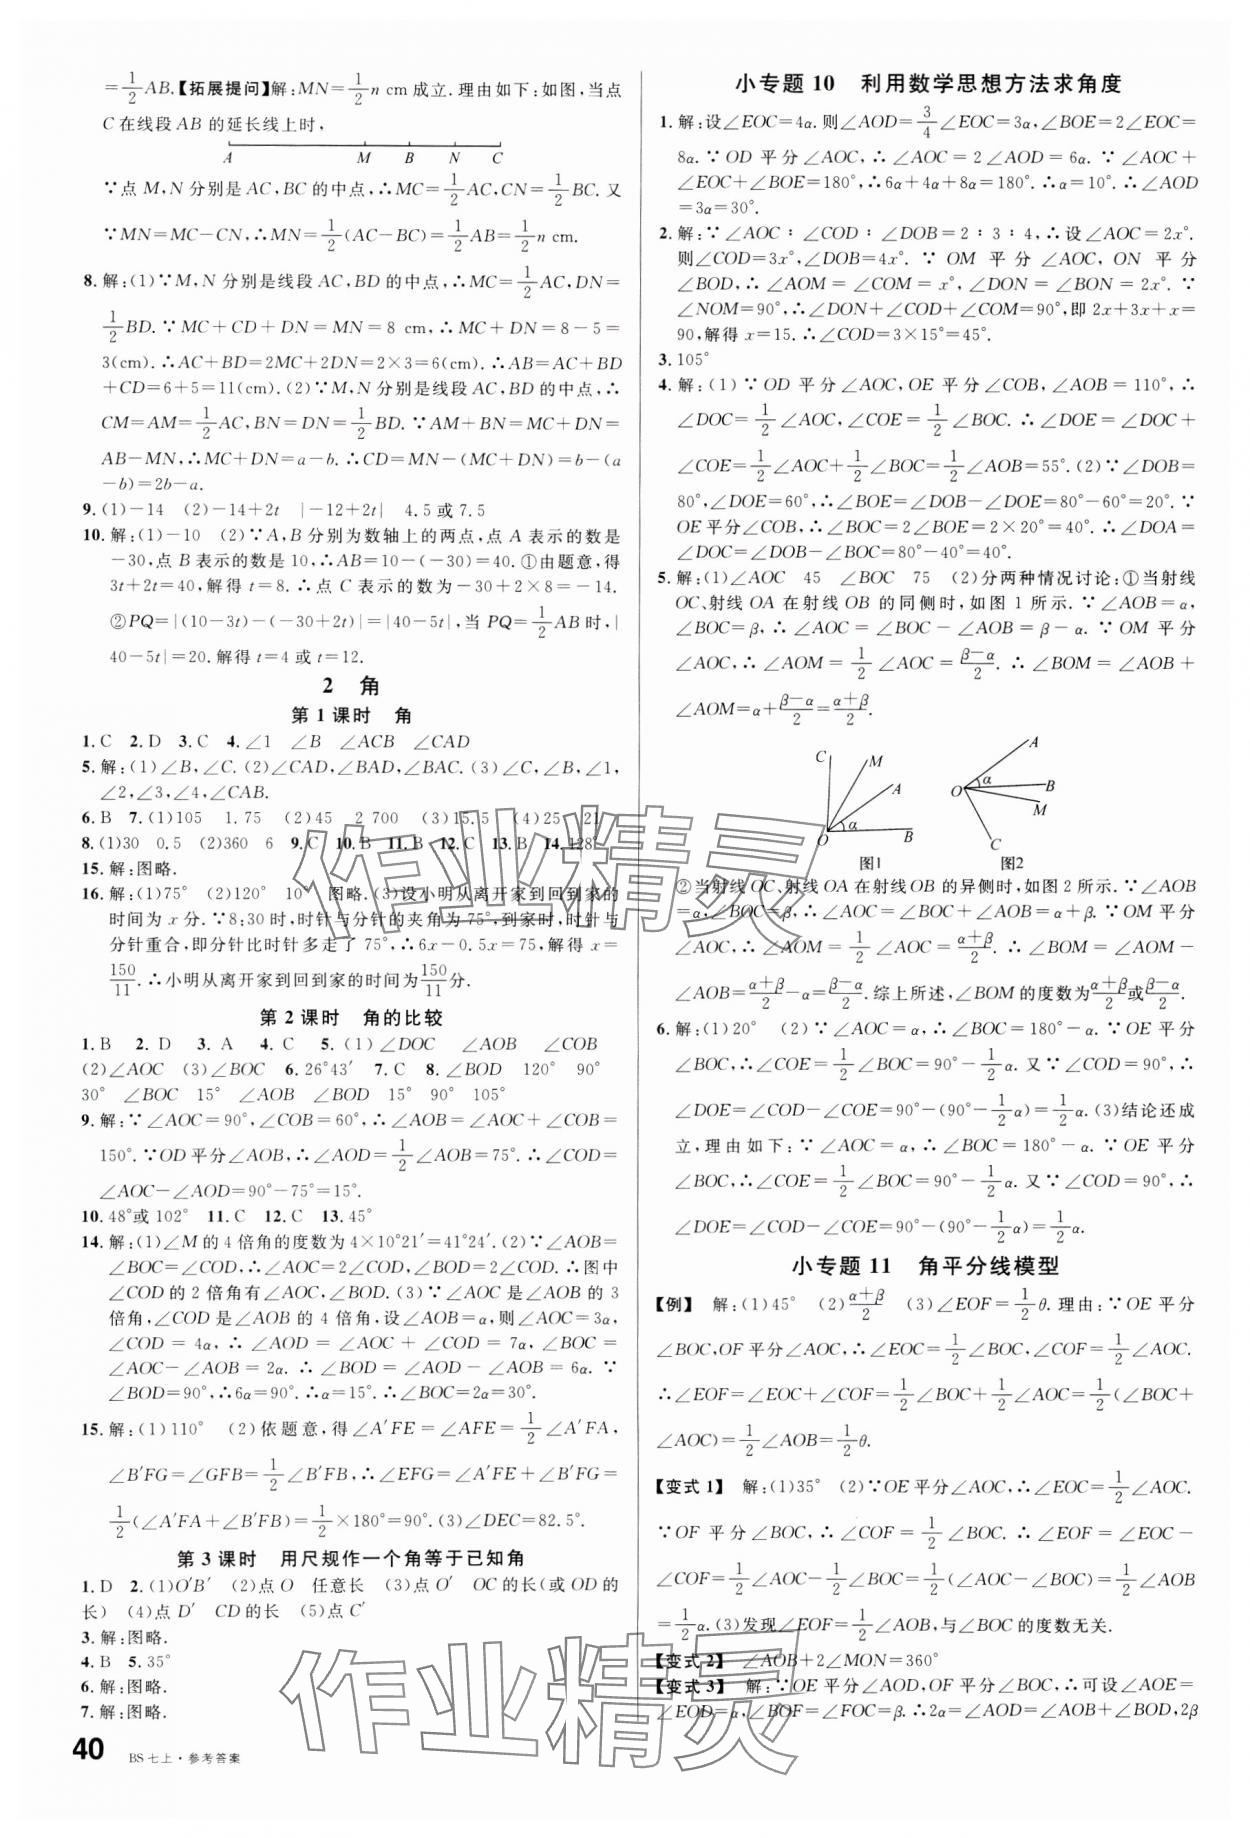 =1/2AB.【拓展提问】解:MN=1/2n cm成立.理由如下:如图,当点
C在线段AB的延长线上时,
A M B N C
∵点M,N分别是AC,BC的中点,∴MC=1/2AC,CN=1/2BC.又
∵MN=MC-CN,∴MN=1/2(AC-BC)=1/2AB=1/2n cm.
8.解:(1)∵M,N分别是线段AC,BD的中点,∴MC=1/2AC,DN=
1/2BD.∵MC+CD+DN=MN=8 cm,∴MC+DN=8-5=
3(cm).∴AC+BD=2MC+2DN=2×3=6(cm).∴AB=AC+BD
+CD=6+5=11(cm).(2)∵M,N分别是线段AC,BD的中点,∴
CM=AM=1/2AC,BN=DN=1/2BD.∵AM+BN=MC+DN=
AB-MN,∴MC+DN=a-b.∴CD=MN-(MC+DN)=b-(a
-b)=2b-a.
9.(1)-14 (2)-14+2t |-12+2t| 4.5或7.5
10.解:(1)-10 (2)∵A,B分别为数轴上的两点,点A表示的数是
-30,点B表示的数是10,∴AB=10-(-30)=40.①由题意,得
3t+2t=40,解得t=8.∴点C表示的数为-30+2×8=-14.
②PQ=|(10-3t)-(-30+2t)|=|40-5t|,当PQ=1/2AB时,|
40-5t|=20.解得t=4或t=12.
2 角
第1课时 角
1.C 2.D 3.C 4.∠1 ∠B ∠ACB ∠CAD
5.解:(1)∠B,∠C.(2)∠CAD,∠BAD,∠BAC.(3)∠C,∠B,∠1,
∠2,∠3,∠4,∠CAB.
6.B 7.(1)105 1.75 (2)45 2 700 (3)15.5 (4)25 21
8.(1)30 0.5 (2)360 6 9.C 10.B 11.B 12.C 13.B 14.128°
15.解:图略.
16.解:(1)75° (2)120° 10° 图略.(3)设小明从离开家到回到家的
时间为x分.∵8:30时,时针与分针的夹角为75°,到家时,时针与
分针重合,即分针比时针多走了75°,∴6x-0.5x=75,解得x=
150/11.∴小明从离开家到回到家的时间为150/11分.
第2课时 角的比较
1.B 2.D 3.A 4.C 5.(1)∠DOC ∠AOB ∠COB
(2)∠AOC (3)∠BOC 6.26°43′ 7.C 8.∠BOD 120° 90°
30° ∠BOC 15° ∠AOB ∠BOD 15° 90° 105°
9.解:∵∠AOC=90°,∠COB=60°,∴∠AOB=∠AOC+∠COB=
150°.∵OD平分∠AOB,∴∠AOD=1/2∠AOB=75°.∴∠COD=
∠AOC-∠AOD=90°-75°=15°.
10.48°或102° 11.C 12.C 13.45°
14.解:(1)∠M的4倍角的度数为4×10°21′=41°24′.(2)∵∠AOB=
∠BOC=∠COD,∴∠AOC=2∠COD,∠BOD=2∠COD.∴图中
∠COD的2倍角有∠AOC,∠BOD.(3)∵∠AOC是∠AOB的3
倍角,∠COD是∠AOB的4倍角,设∠AOB=α,则∠AOC=3α,
∠COD=4α,∴∠AOD=∠AOC+∠COD=7α,∠BOC=
∠AOC-∠AOB=2α.∴∠BOD=∠AOD-∠AOB=6α.∵
∠BOD=90°,∴6α=90°.∴α=15°.∴∠BOC=2α=30°.
15.解:(1)110° (2)依题意,得∠A′FE=∠AFE=1/2∠A′FA,
∠B′FG=∠GFB=1/2∠B′FB,∴∠EFG=∠A′FE+∠B′FG=
1/2(∠A′FA+∠B′FB)=1/2×180°=90°.(3)∠DEC=82.5°.
第3课时 用尺规作一个角等于已知角
1.D 2.(1)O′B′ (2)点O 任意长 (3)点O′ OC的长(或OD的
长) (4)点D′ CD的长 (5)点C′
3.解:图略.
4.B 5.35°
6.解:图略.
7.解:图略.
40 BS七上·参考答案
小专题10 利用数学思想方法求角度
1.解:设∠EOC=4α.则∠AOD=3/4∠EOC=3α,∠BOE=2∠EOC=
8α.∵OD平分∠AOC,∴∠AOC=2∠AOD=6α.∵∠AOC+
∠EOC+∠BOE=180°,∴6α+4α+8α=180°.∴α=10°.∴∠AOD
=3α=30°.
2.解:∵∠AOC∶∠COD∶∠DOB=2∶3∶4,∴设∠AOC=2x°.
则∠COD=3x°,∠DOB=4x°.∵OM平分∠AOC,ON平分
∠BOD,∴∠AOM=∠COM=x°,∠DON=∠BON=2x°.∵
∠NOM=90°,∴∠DON+∠COD+∠COM=90°,即2x+3x+x=
90,解得x=15.∴∠COD=3×15°=45°.
3.105°
4.解:(1)∵OD平分∠AOC,OE平分∠COB,∠AOB=110°,∴
∠DOC=1/2∠AOC,∠COE=1/2∠BOC.∴∠DOE=∠DOC+
∠COE=1/2∠AOC+1/2∠BOC=1/2∠AOB=55°.(2)∵∠DOB=
80°,∠DOE=60°,∴∠BOE=∠DOB-∠DOE=80°-60°=20°.∵
OE平分∠COB,∴∠BOC=2∠BOE=2×20°=40°.∴∠DOA=
∠DOC=∠DOB-∠BOC=80°-40°=40°.
5.解:(1)∠AOC 45 ∠BOC 75 (2)分两种情况讨论:①当射线
OC、射线OA在射线OB的同侧时,如图1所示.∵∠AOB=α,
∠BOC=β,∴∠AOC=∠BOC-∠AOB=β-α.∵OM平分
∠AOC,∴∠AOM=1/2∠AOC=(β-α)/2.∴∠BOM=∠AOB+
∠AOM=α+(β-α)/2=(α+β)/2.
C M A O α B
图1
A O α B M C
图2
②当射线OC、射线OA在射线OB的异侧时,如图2所示.∵∠AOB
=α,∠BOC=β,∴∠AOC=∠BOC+∠AOB=α+β.∵OM平分
∠AOC,∴∠AOM=1/2∠AOC=(α+β)/2.∴∠BOM=∠AOM-
∠AOB=(α+β)/2-α=(β-α)/2.综上所述,∠BOM的度数为(α+β)/2或(β-α)/2.
6.解:(1)20° (2)∵∠AOC=α,∴∠BOC=180°-α.∵OE平分
∠BOC,∴∠COE=1/2∠BOC=90°-1/2α.又∵∠COD=90°,∴
∠DOE=∠COD-∠COE=90°-(90°-1/2α)=1/2α.(3)结论还成
立,理由如下:∵∠AOC=α,∴∠BOC=180°-α.∵OE平分
∠BOC,∴∠COE=1/2∠BOC=90°-1/2α.又∵∠COD=90°,∴
∠DOE=∠COD-∠COE=90°-(90°-1/2α)=1/2α.
小专题11 角平分线模型
【例】 解:(1)45° (2)(α+β)/2 (3)∠EOF=1/2θ.理由:∵OE平分
∠BOC,OF平分∠AOC,∴∠EOC=1/2∠BOC,∠COF=1/2∠AOC.
∴∠EOF=∠EOC+∠COF=1/2∠BOC+1/2∠AOC=1/2(∠BOC+
∠AOC)=1/2∠AOB=1/2θ.
【变式1】 解:(1)35° (2)∵OE平分∠AOC,∴∠EOC=1/2∠AOC.
∵OF平分∠BOC,∴∠COF=1/2∠BOC.∴∠EOF=∠EOC-
∠COF=1/2∠AOC-1/2∠BOC=1/2(∠AOC-∠BOC)=1/2∠AOB
=1/2α.(3)发现∠EOF=1/2∠AOB,与∠BOC的度数无关.
【变式2】 ∠AOB+2∠MON=360°
【变式3】 解:∵OE平分∠AOD,OF平分∠BOC,∴可设∠AOE=
∠EOD=α,∠BOF=∠FOC=β.∴2α=∠AOD=∠AOB+∠BOD,2β
作业精灵
作业精灵